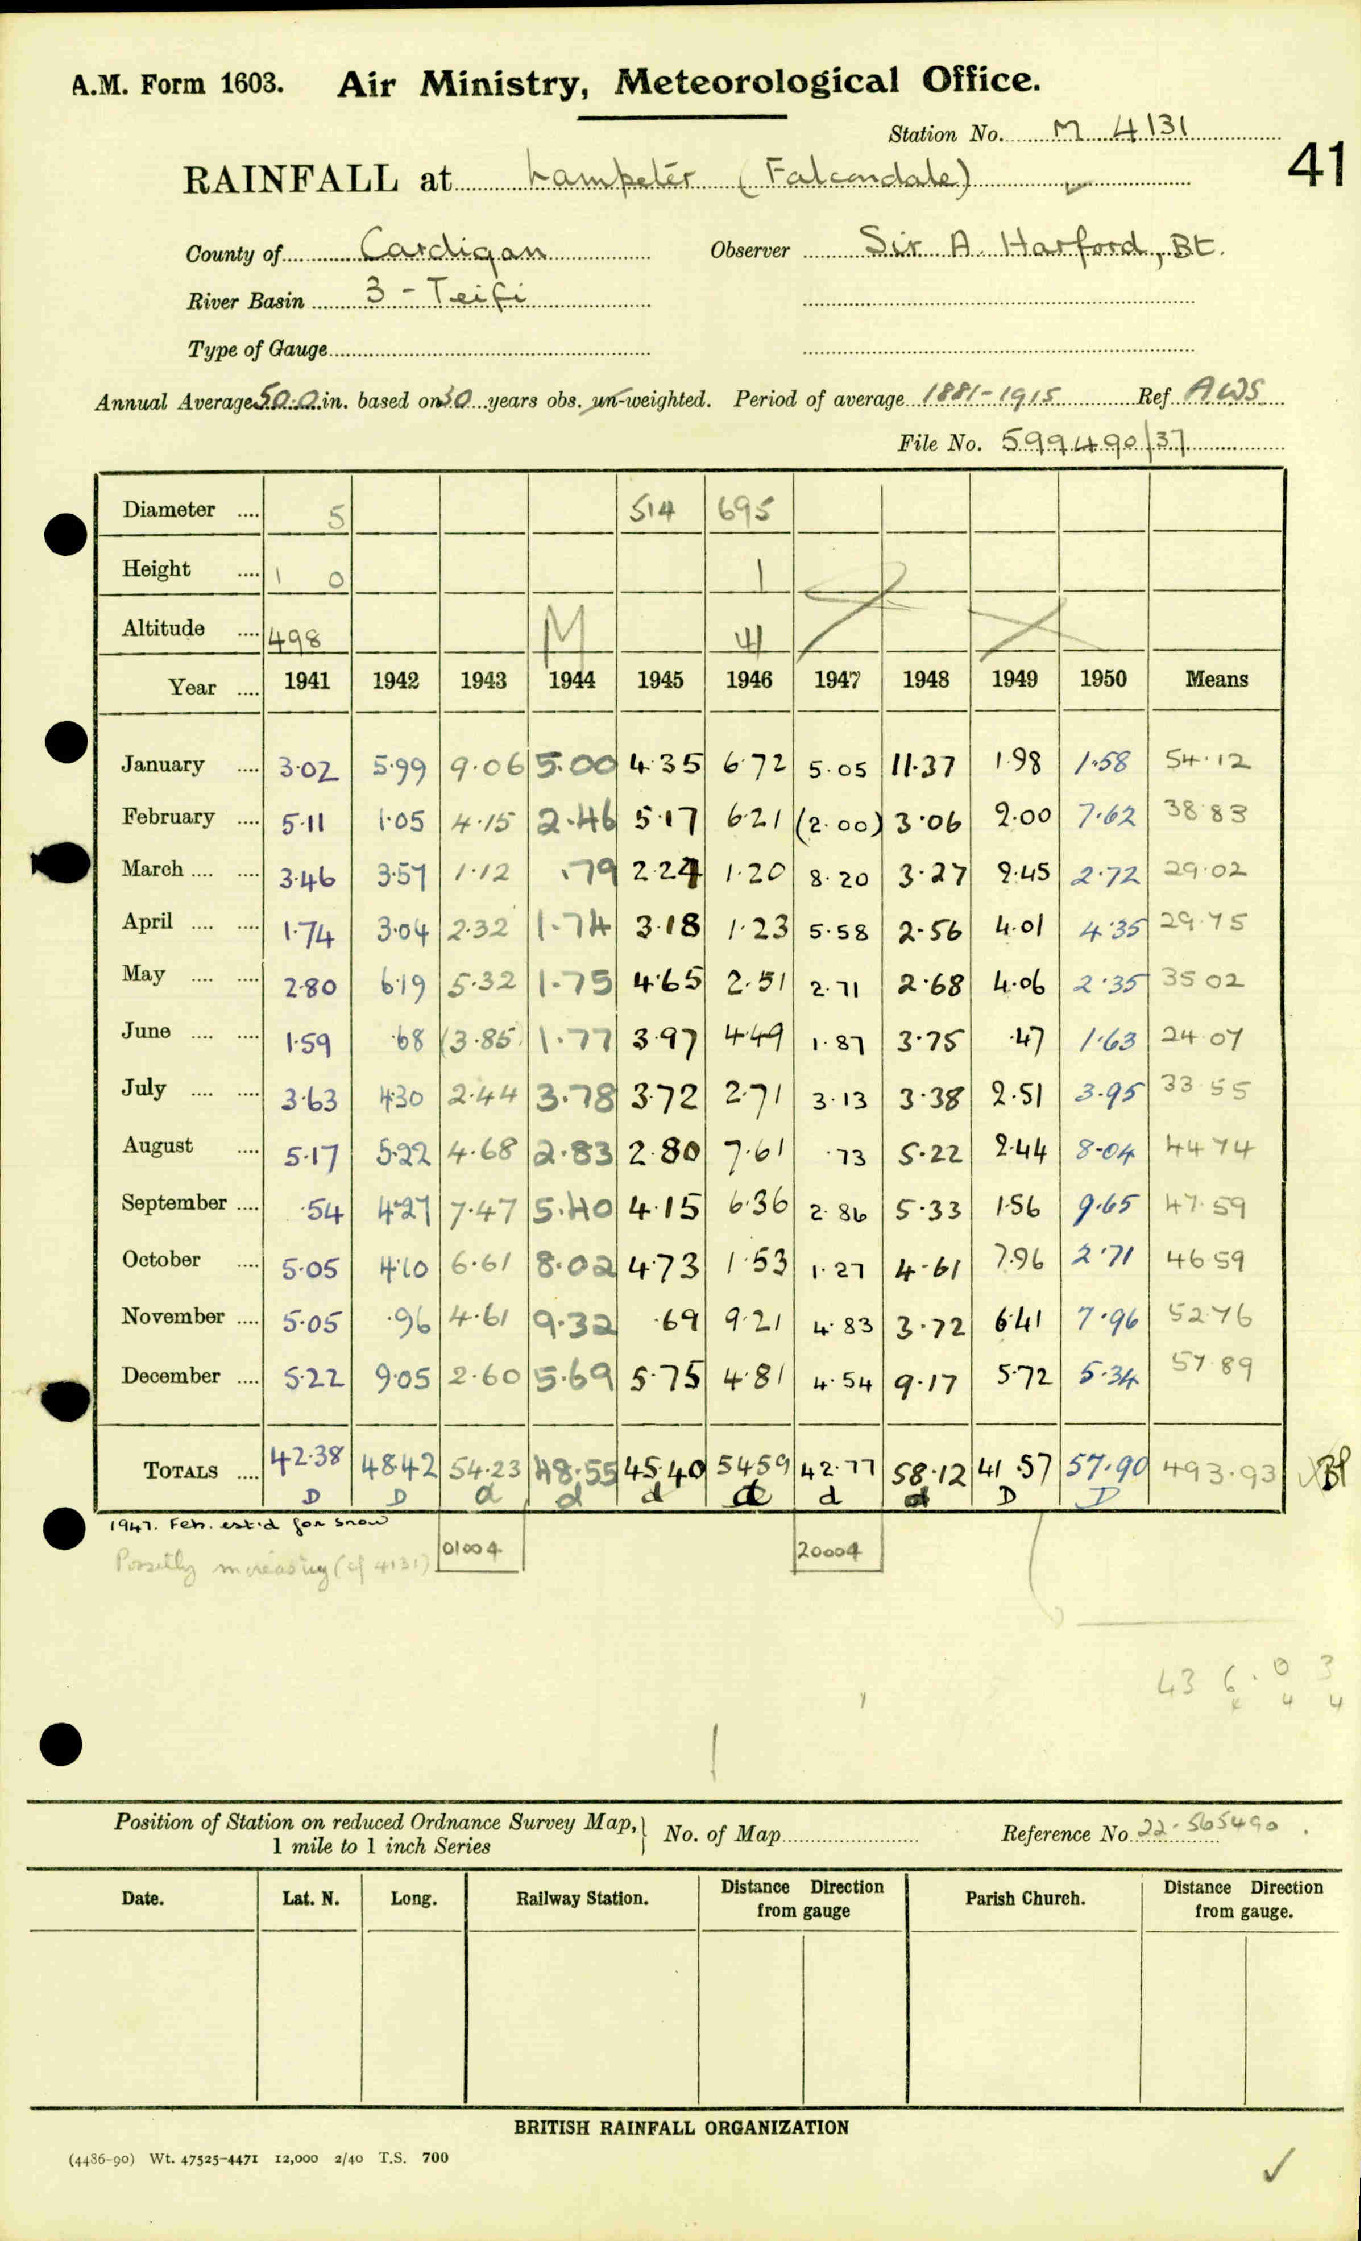 A.M. Form 1603. Air Ministry, Meteorological Office.
Station No. M 4131
41
RAINFALL at Lampeter (Falcondale)
County of Cardigan Observer Sir A. Harford, Bt.
River Basin 3 - Teifi
Type of Gauge
Annual Average 50.0 in. based on 30 years obs. un-weighted. Period of average 1881-1915 Ref. AWS
File No. 599490/37
Diameter .... 5 514 695
Height .... 1 0 1
Altitude .... 498 M
Year .... 1941 1942 1943 1944 1945 1946 1947 1948 1949 1950 Means
January .... 3.02 5.99 9.06 5.00 4.35 6.72 5.05 11.37 1.98 1.58 54.12
February .... 5.11 1.05 4.15 2.46 5.17 6.21 (2.00) 3.06 2.00 7.62 38.83
March .... .... 3.46 3.57 1.12 .79 2.24 1.20 8.20 3.27 2.45 2.72 29.02
April .... .... 1.74 3.04 2.32 1.74 3.18 1.23 5.58 2.56 4.01 4.35 29.75
May .... .... 2.80 6.19 5.32 1.75 4.65 2.51 2.71 2.68 4.06 2.35 35.02
June .... .... 1.59 .68 (3.85) 1.77 3.97 4.49 1.87 3.75 .47 1.63 24.07
July .... .... 3.63 4.30 2.44 3.78 3.72 2.71 3.13 3.38 2.51 3.95 33.55
August .... 5.17 5.22 4.68 2.83 2.80 7.61 .73 5.22 2.44 8.04 44.74
September .... .54 4.27 7.47 5.40 4.15 6.36 2.86 5.33 1.56 9.65 47.59
October .... 5.05 4.10 6.61 8.02 4.73 1.53 1.27 4.61 7.96 2.71 46.59
November .... 5.05 .96 4.61 9.32 .69 9.21 4.83 3.72 6.41 7.96 52.76
December .... 5.22 9.05 2.60 5.69 5.75 4.81 4.54 9.17 5.72 5.34 57.89
TOTALS .... 42.38 48.42 54.23 48.55 45.40 54.59 42.77 58.12 41.57 57.90 493.93
D D d d d d d d D D
1947. Feb. est'd for snow
Possibly increasing (cf 4131) 01004 20004
43 6.03
4 4
Position of Station on reduced Ordnance Survey Map, 1 mile to 1 inch Series No. of Map Reference No. 22-565490.
Date. Lat. N. Long. Railway Station. Distance Direction from gauge Parish Church. Distance Direction from gauge.
BRITISH RAINFALL ORGANIZATION
(4486-90) Wt. 47525-4471 12,000 2/40 T.S. 700